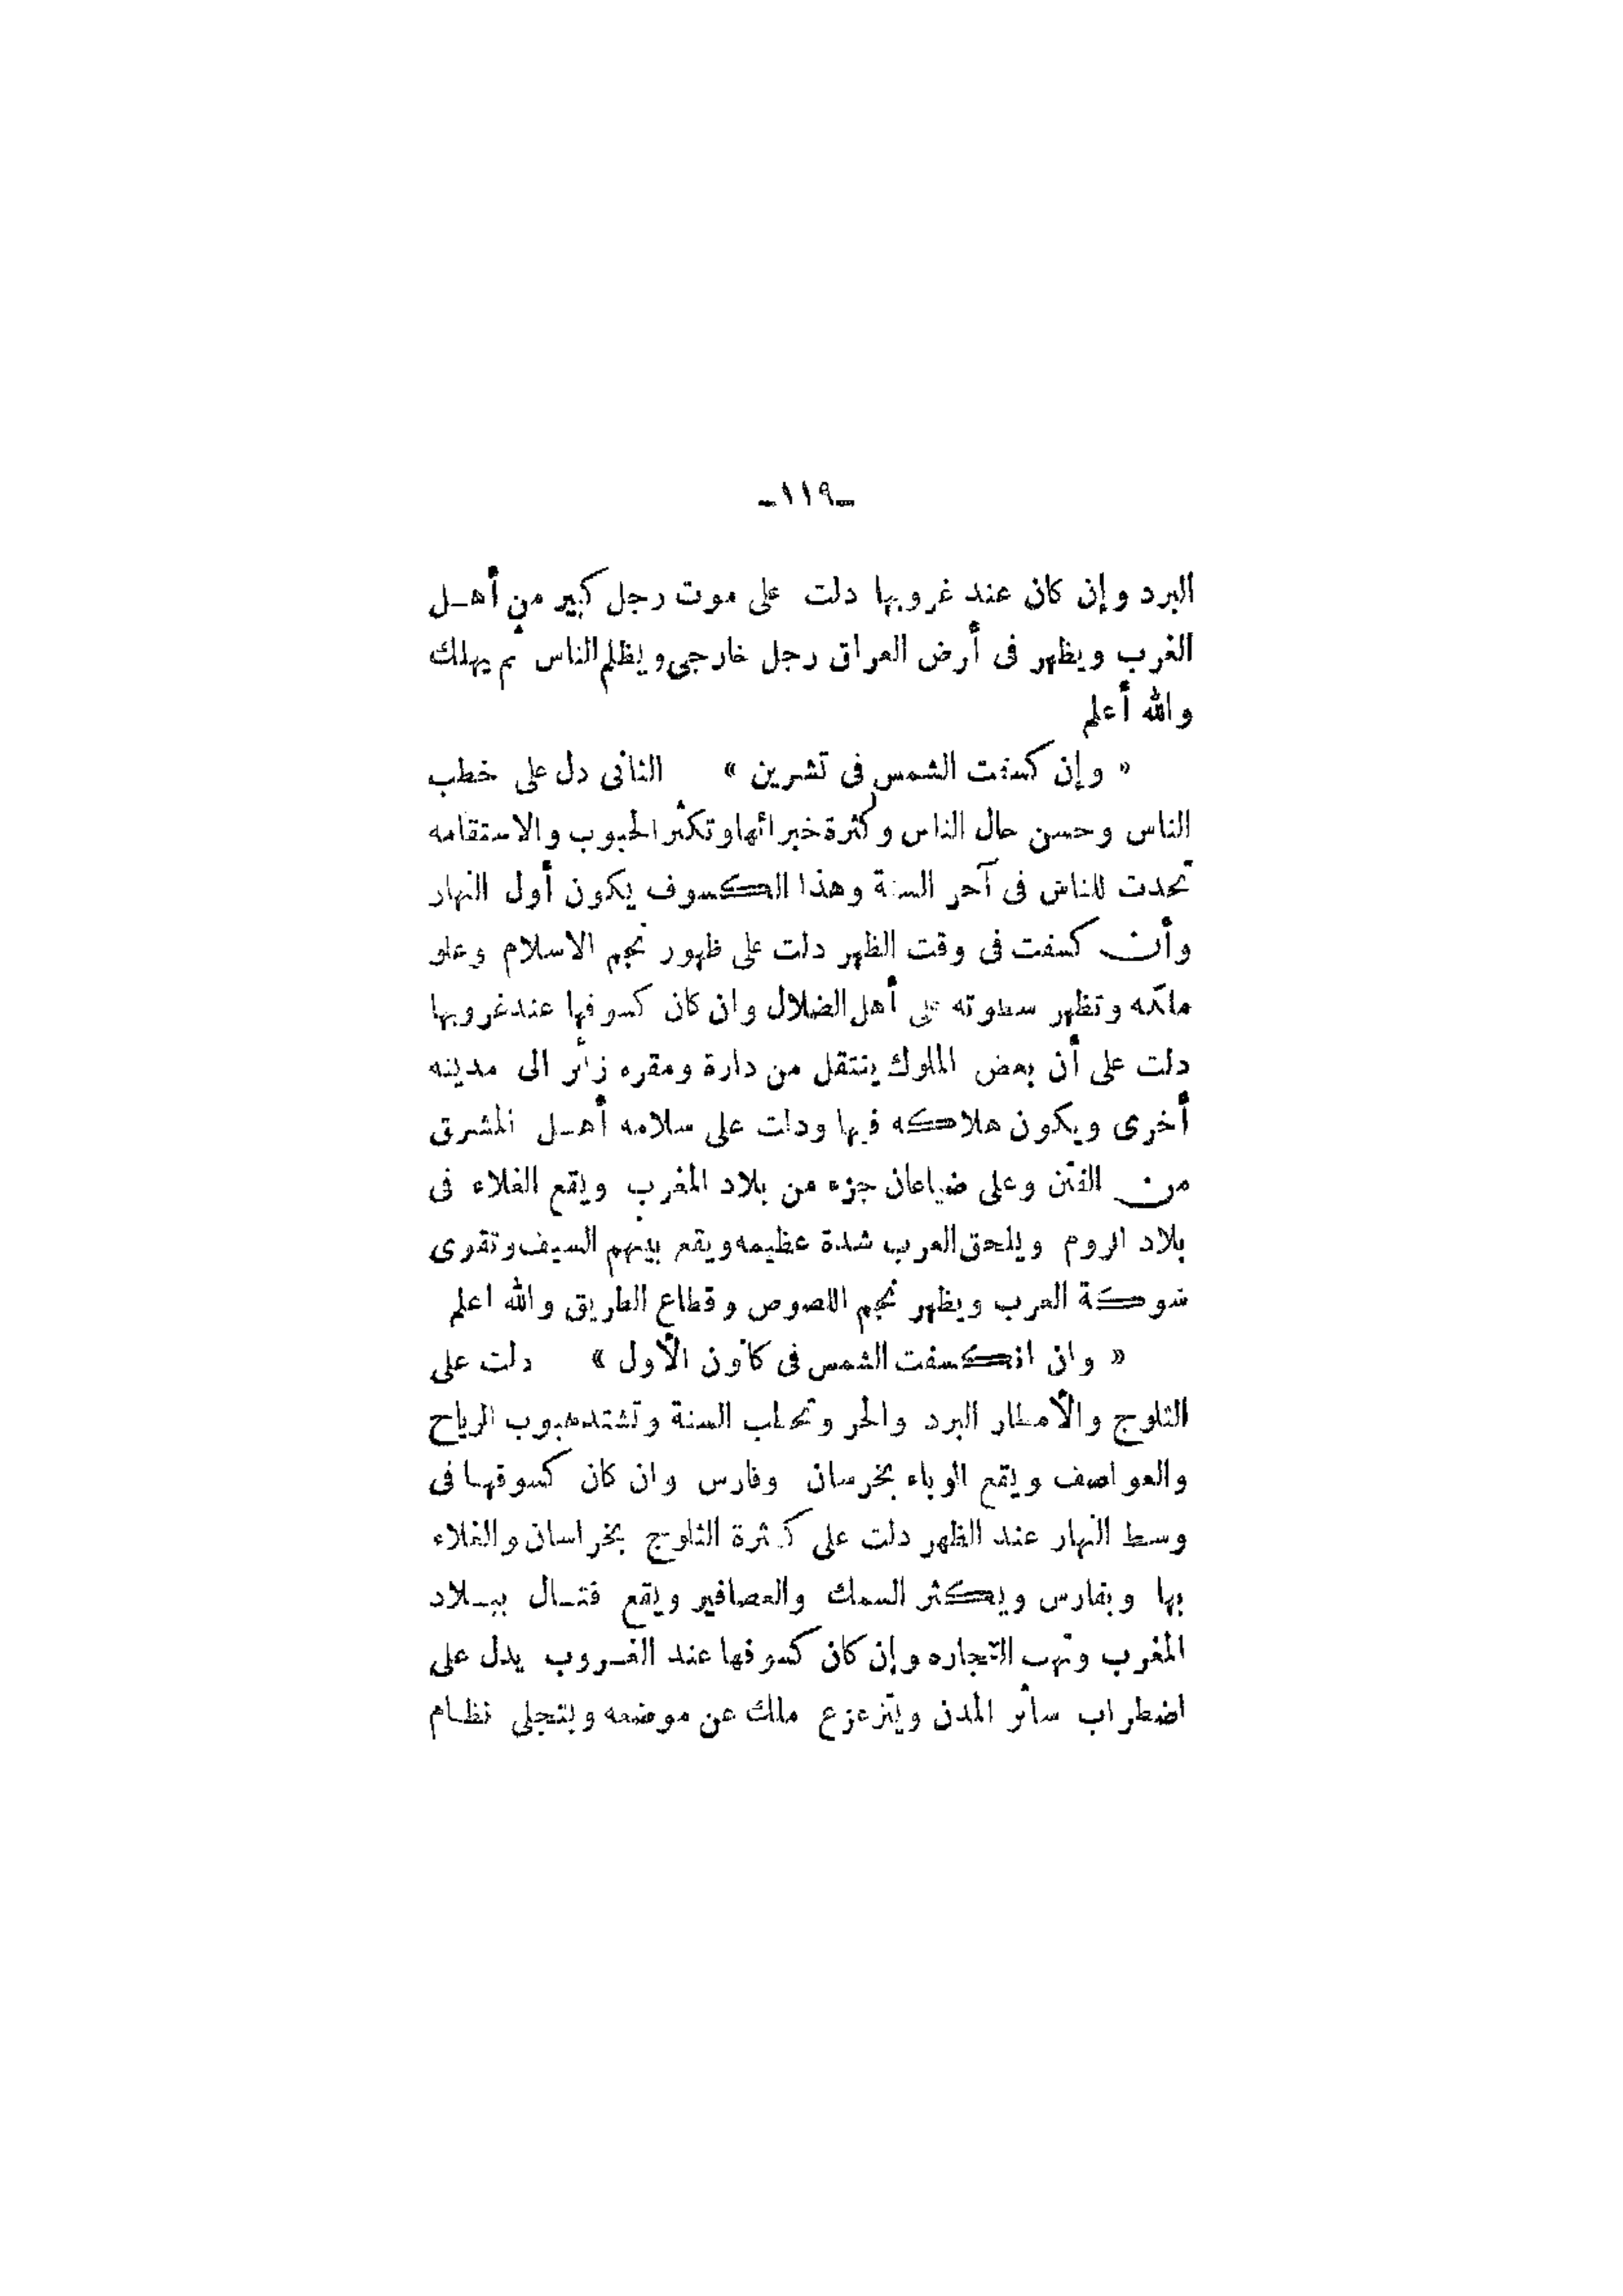 ـ١١٩ـ
البرد وإن كان عند غروبها دلت على موت رجل كبير من أهـل
الغرب ويظهر فى أرض العراق رجل خارجى ويظلم الناس ثم يهلك
والله أعلم
« وإن كسفت الشمس فى تشرين » الثانى دل على خطب
الناس وحسن حال الناس وكثرة خيراتها وتكثر الحبوب والاستقامه
تحدث للناس فى آخر السنة وهذا الكسوف يكون أول النهار
وأن كسفت فى وقت الظهر دلت على ظهور نجم الاسلام وعلو
ملكه وتظهر سطوته على أهل الضلال وان كان كسوفها عند غروبها
دلت على أن بعض الملوك ينتقل من دارة ومقره زائر الى مدينه
أخرى ويكون هلاكه فيها ودلت على سلامه أهـل المشرق
من الفتن وعلى ضياعان جزء من بلاد المغرب ويقع الغلاء فى
بلاد الروم ويلحق العرب شدة عظيمه ويقع بينهم السيف وتقوى
شوكة العرب ويظهر نجم اللصوص وقطاع الطريق والله اعلم
« وان انكسفت الشمس فى كانون الأول » دلت على
الثلوج والأمطار البرد والحر وتحلب السنة وتشتد هبوب الرياح
والعواصف ويقع الوباء بخرسان وفارس وان كان كسوفهـا فى
وسط النهار عند الظهر دلت على كثرة الثلوج بخراسان والغلاء
بها وبفارس ويكثر السمك والعصافير ويقع قتـال ببـلاد
المغرب ونهب التجاره وإن كان كسوفها عند الغـروب يدل على
اضطراب سائر المدن ويتزعزع ملك عن موضعه وينجلى نظـام